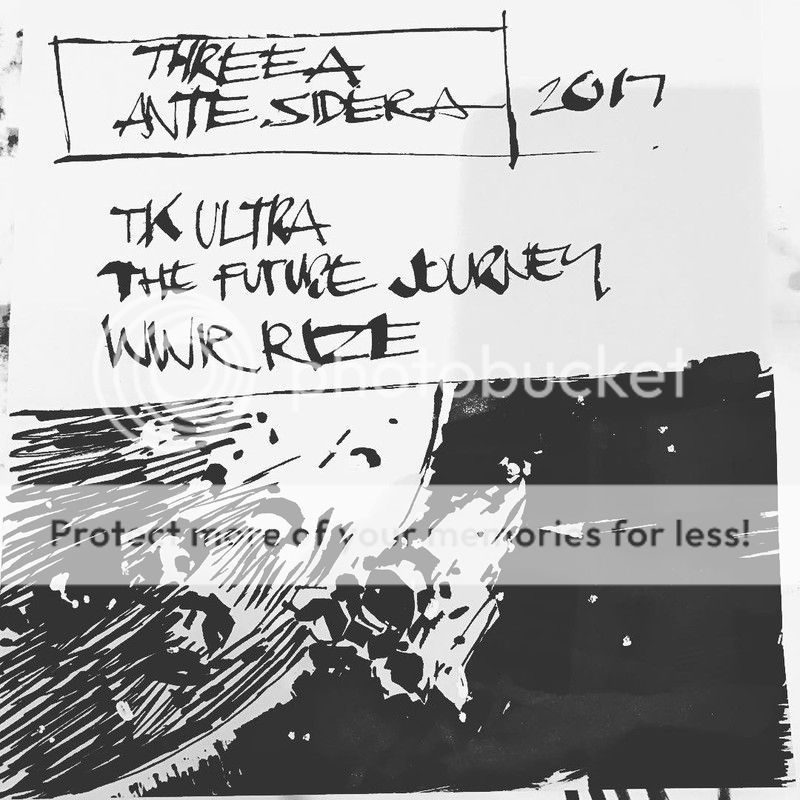 THREEA
ANTE SIDERA 2017
TK ULTRA
THE FUTURE JOURNEY
WWR RIZE
photobucket
Protect more of your memories for less!